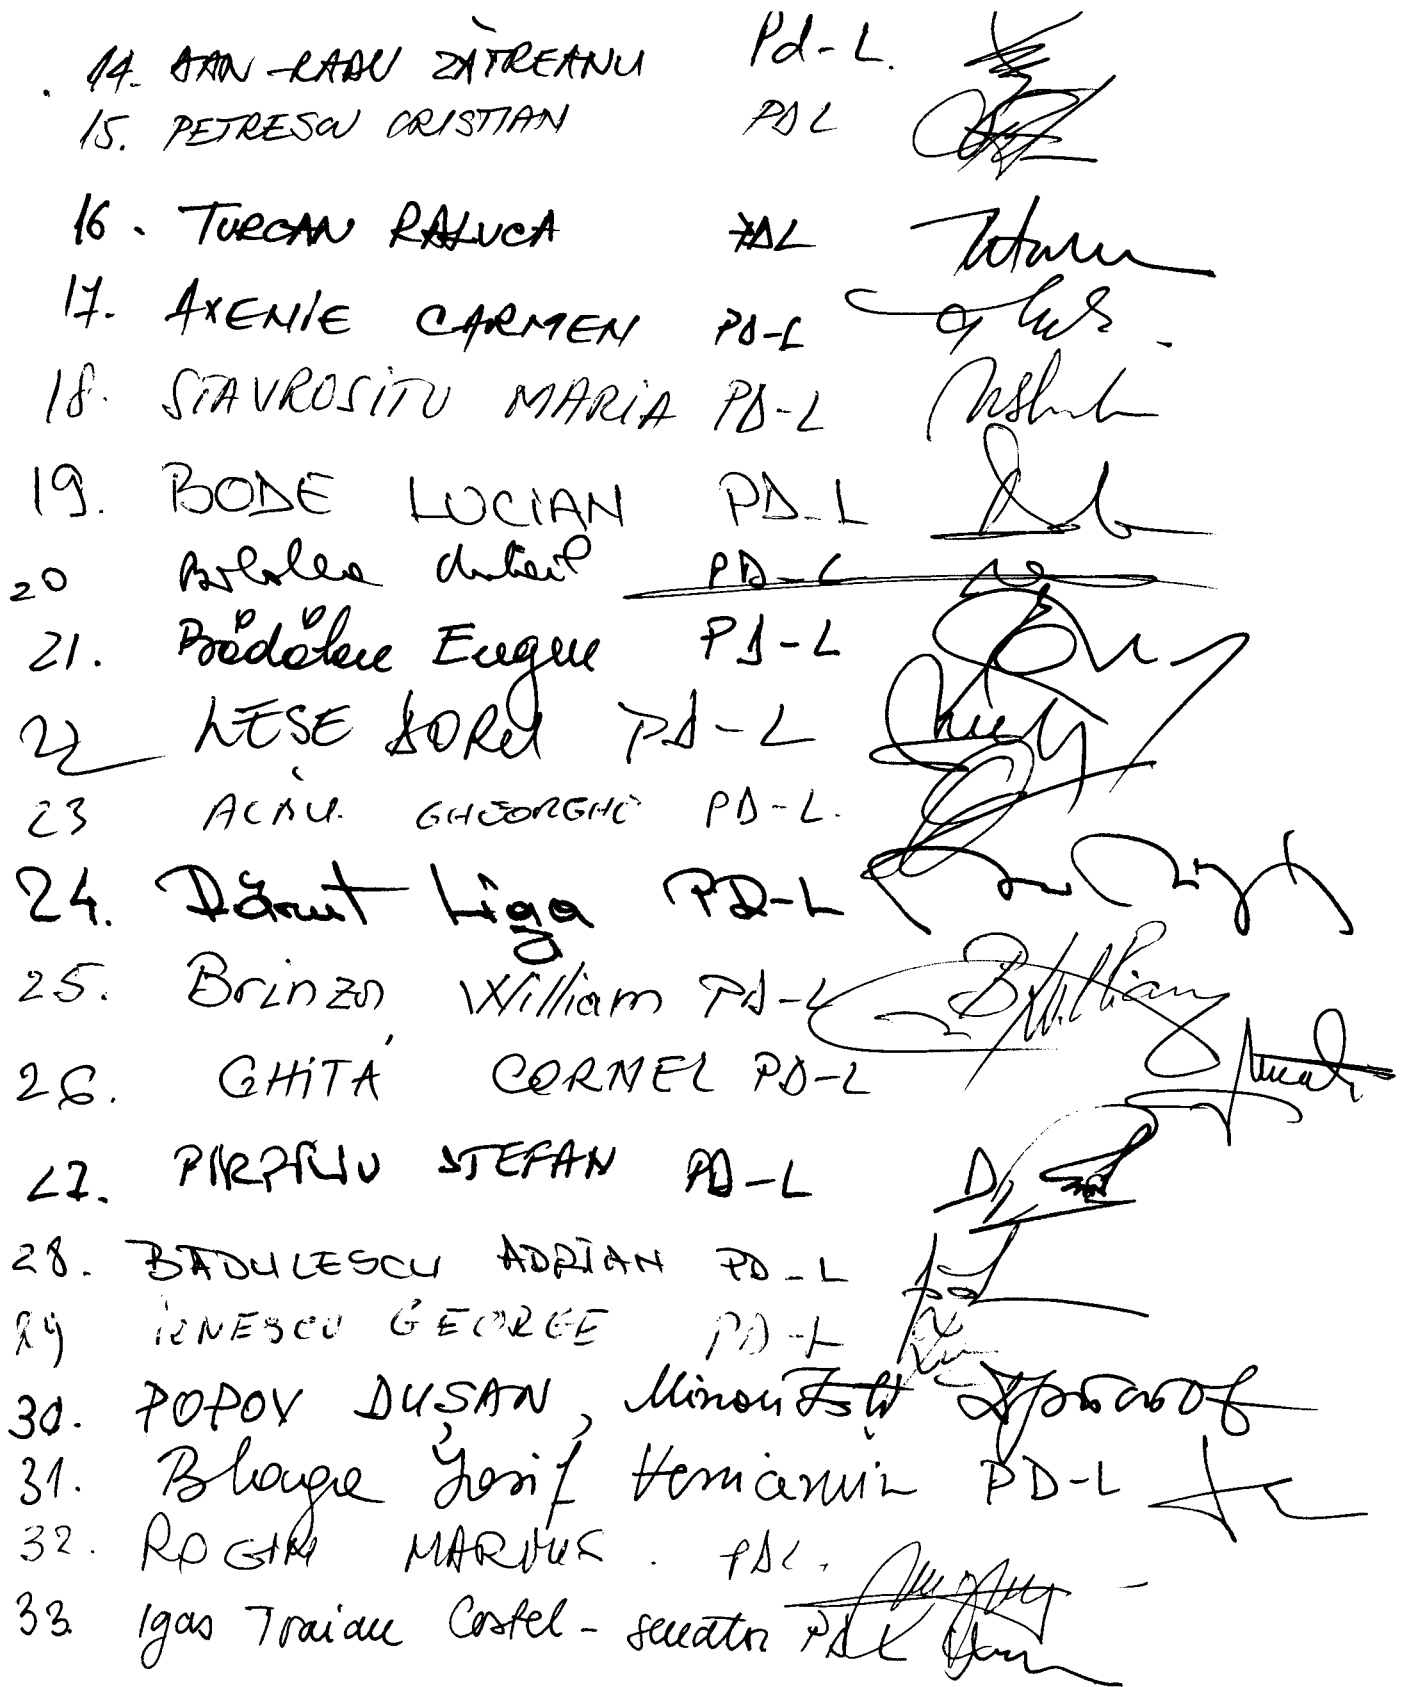 14. DAN-RADU ZĂTREANU Pd-L.
15. PETRESCU CRISTIAN PDL
16. TURCAN RALUCA PDL
17. AXENIE CARMEN PD-L
18. STAVROSITU MARIA PD-L
19. BODE LUCIAN PD-L
20 PD-L
21. Bădălan Eugen PD-L
22 LESE DOREL PD-L
23 GHEORGHE PD-L.
24. Dănut Liga PD-L
25. Brinza William PD-L
26. GHITĂ CORNEL PD-L
27. PIRPĂLIU STEFAN PD-L
28. BADULESCU ADRIAN PD-L
29 IONESCU GEORGE PD-L
30. POPOV DUȘAN, Minorități
31. Blaga Iosif Veniamin PD-L
32. ROGIN MARIUS. PDL.
33. Igas Traian Costel - senator PDL